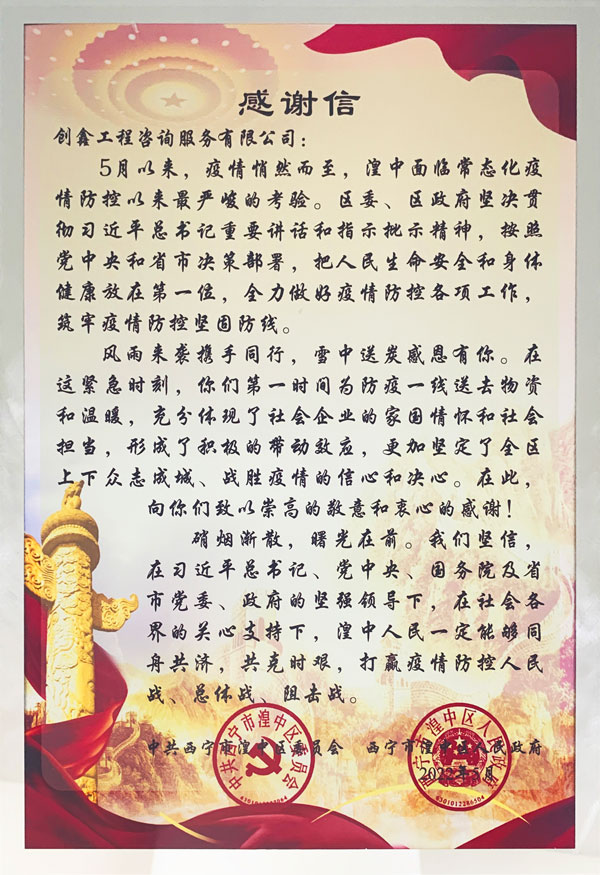 感谢信
创鑫工程咨询服务有限公司：
5月以来，疫情悄然而至，湟中面临常态化疫
情防控以来最严峻的考验。区委、区政府坚决贯
彻习近平总书记重要讲话和指示批示精神，按照
党中央和省市决策部署，把人民生命安全和身体
健康放在第一位，全力做好疫情防控各项工作，
筑牢疫情防控坚固防线。
风雨来袭携手同行，雪中送炭感恩有你。在
这紧急时刻，你们第一时间为防疫一线送去物资
和温暖，充分体现了社会企业的家国情怀和社会
担当，形成了积极的带动效应，更加坚定了全区
上下众志成城、战胜疫情的信心和决心。在此，
向你们致以崇高的敬意和衷心的感谢！
硝烟渐散，曙光在前。我们坚信，
在习近平总书记、党中央、国务院及省
市党委、政府的坚强领导下，在社会各
界的关心支持下，湟中人民一定能够同
舟共济，共克时艰，打赢疫情防控人民
战、总体战、阻击战。
中共西宁市湟中区委员会 西宁市湟中区人民政府
2022年5月
中共西宁市湟中区委员会
西宁市湟中区人民政府